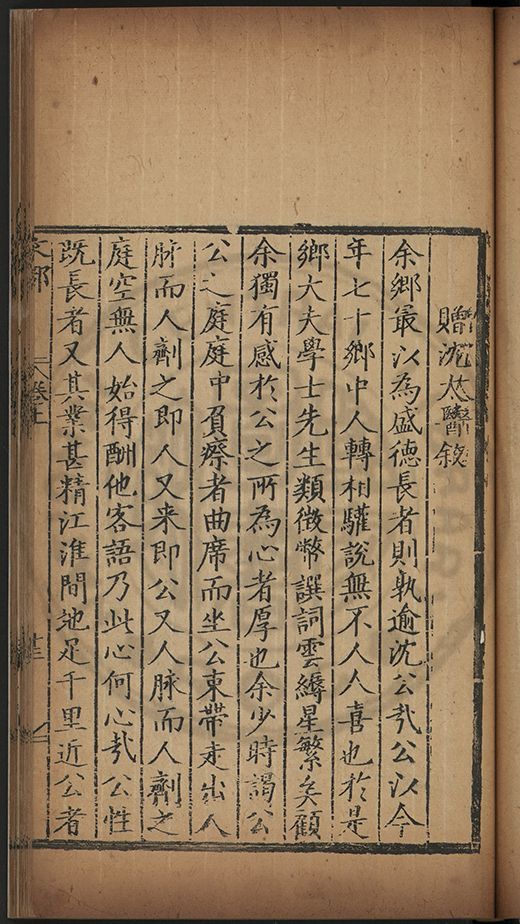 贈沈太醫敘
余鄉最以為盛德長者則孰逾沈公㢤公以今
年七十鄉中人轉相驩說無不人人喜也於是
鄉大夫學士先生類徵幣譔詞雲縟星繁矣顧
余獨有感於公之所為心者厚也余少時謁公
公之庭庭中負瘵者曲席而坐公束帶走出人
脉而人劑之即人又来即公又人脉而人劑之
庭空無人始得酬他客語乃此心何心㢤公性
既長者又其業甚精江淮間地足千里近公者